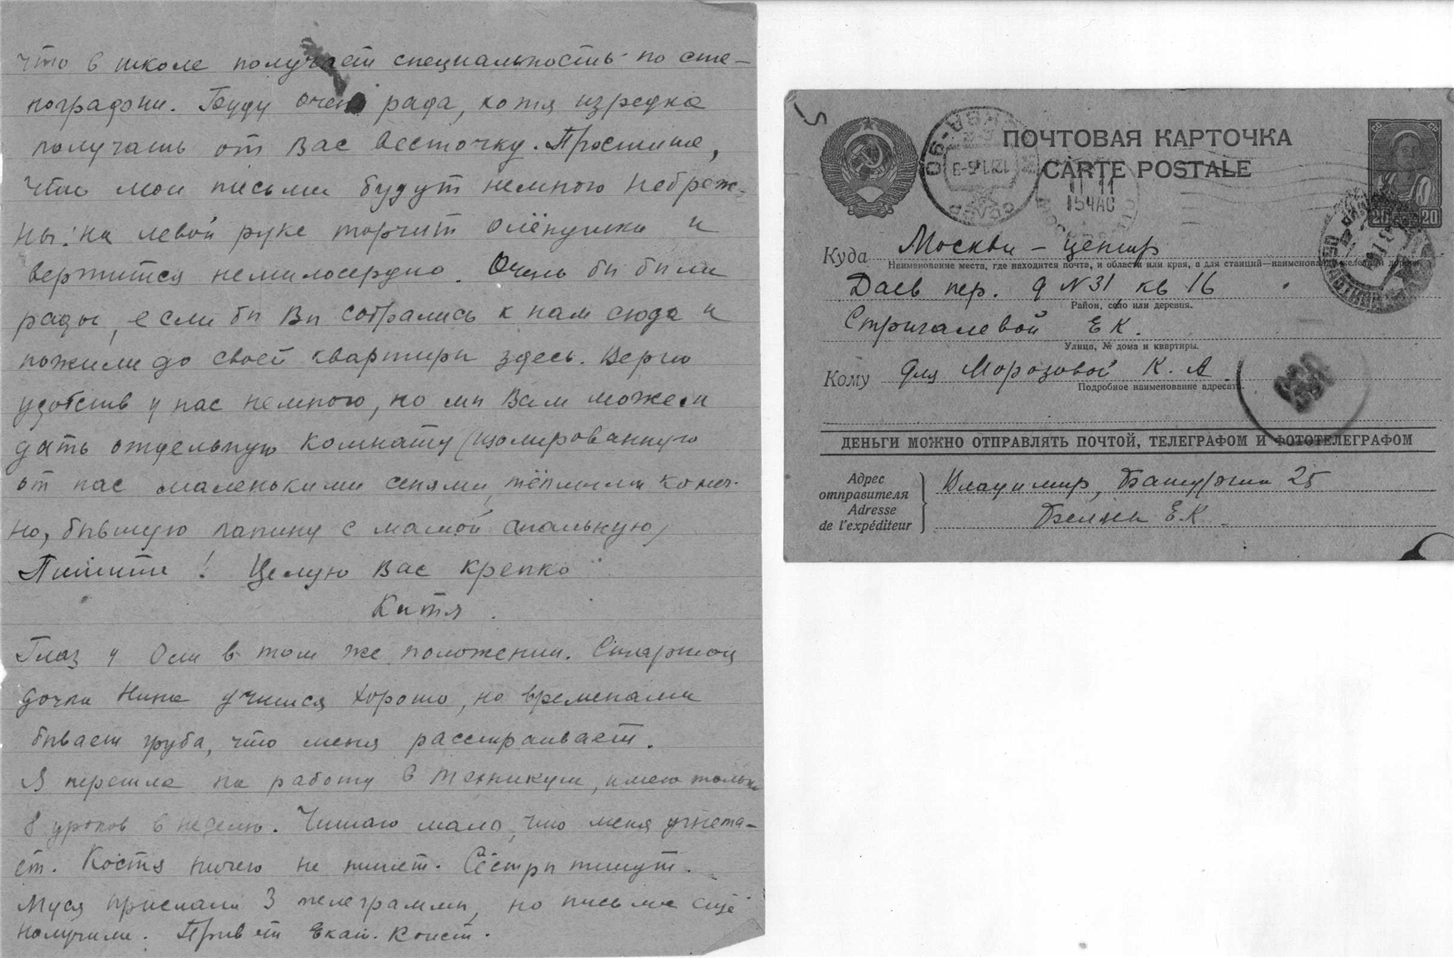 что в школе получает специальность по сте-
нографии. Буду очень рада, хотя изредка
получать от Вас весточку. Простите,
что мои письма будут немного небреж-
ны: на левой руке торчит Олёнушка и
вертится немилосердно. Очень бы были
рады, если бы Вы собрались к нам сюда и
пожили до своей квартиры здесь. Верно
удобств у нас немного, но мы Вам можем
дать отдельную комнату (изолированную
от нас маленькими сенями, тёплыми конеч-
но, бывшую папину с мамой спальную)
Пишите! Целую Вас крепко
Катя.
Глаз у Оли в том же положении. Старшая
дочка Нина учится хорошо, но временами
бывает груба, что меня расстраивает.
Я перешла на работу в техникум, имею только
8 уроков в неделю. Читаю мало, что меня угнета-
ет. Костя ничего не пишет. Сёстры пишут.
Муся прислали 3 телеграммы, но письма ещё
получили. Привет Екат. Конст.
ПОЧТОВАЯ КАРТОЧКА
CARTE POSTALE
15 ЧАС
20 20
Куда Москва - центр
Наименование места, где находится почта, и области или края, а для станций—наименование железной дороги
Даев пер. д N 31 кв 16
Район, село или деревня.
Стригалевой Е К.
Улица, № дома и квартиры.
Кому для Морозовой К. А.
Подробное наименование адресата
ДЕНЬГИ МОЖНО ОТПРАВЛЯТЬ ПОЧТОЙ, ТЕЛЕГРАФОМ И ФОТОТЕЛЕГРАФОМ
Адрес отправителя
Adresse de l'expéditeur
Владимир, 25
Е.К.